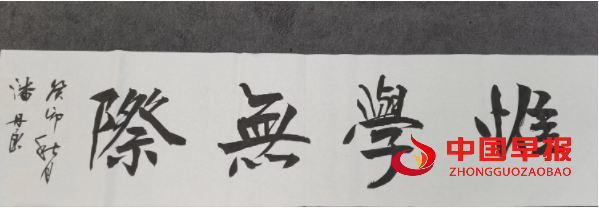 惟學無際
癸卯秋月
潘丹
中国早报
ZHONGGUOZAOBAO